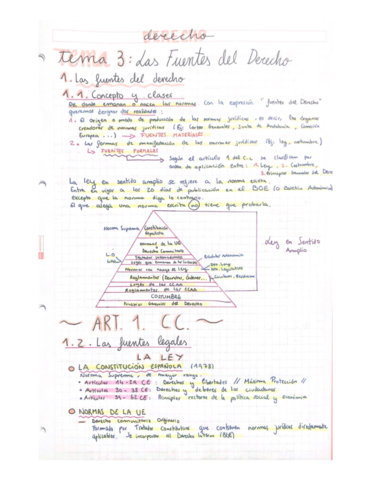 derecho
Tema 3: Las Fuentes del Derecho
1. Las fuentes del derecho
1.1. Concepto y clases
De donde emanan o nacen las normas con la expresión "fuentes del Derecho"
queremos designar dos realidades:
1. El origen o modo de producción de las normas jurídicas, es decir, los órganos
creadores de normas jurídicas (Ej: Cortes Generales, Junta de Andalucía, Comisión
Europea ...) → FUENTES MATERIALES
2. Las formas de manifestación de las normas jurídicas (Ej: ley, costumbre)
↳ FUENTES FORMALES
Según el artículo 1 del C.c. se clasifican por
orden de aplicación entre: 1. Ley, 2. Costumbre,
3. Principios Generales del Derecho
La Ley en sentido amplio se refiere a la norma escrita.
Entra en vigor a los 20 días de publicación en el BOE (o Boletín Autonómico)
excepto que la norma diga lo contrario.
El que alega una norma escrita no tiene que probarla.
Norma Suprema Constitución
Española
Normas de la UE
Derecho Comunitario
Tratados internacionales
Normas con rango de Ley
Reglamentos
Reglamentos de las CCAA
COSTUMBRE
Principios Generales del Derecho
Ley en Sentido
Amplio
~ ART. 1. CC. ~
1.2. Las fuentes legales
LA LEY
LA CONSTITUCIÓN ESPAÑOLA (1978)
Norma Suprema, de mayor rango.
• Artículos 14-29 CE: Derechos y libertades // Máxima Protección //
• Artículos 30-38 CE: Derechos y deberes de los ciudadanos.
• Artículos 39-52 CE: Principios rectores de la política social y económica
NORMAS DE LA UE
— Derecho Comunitario Originario
Formado por Tratados Constitutivos que contienen normas jurídicas directamente
aplicables. Se incorporan al Derecho Interno (BOE)